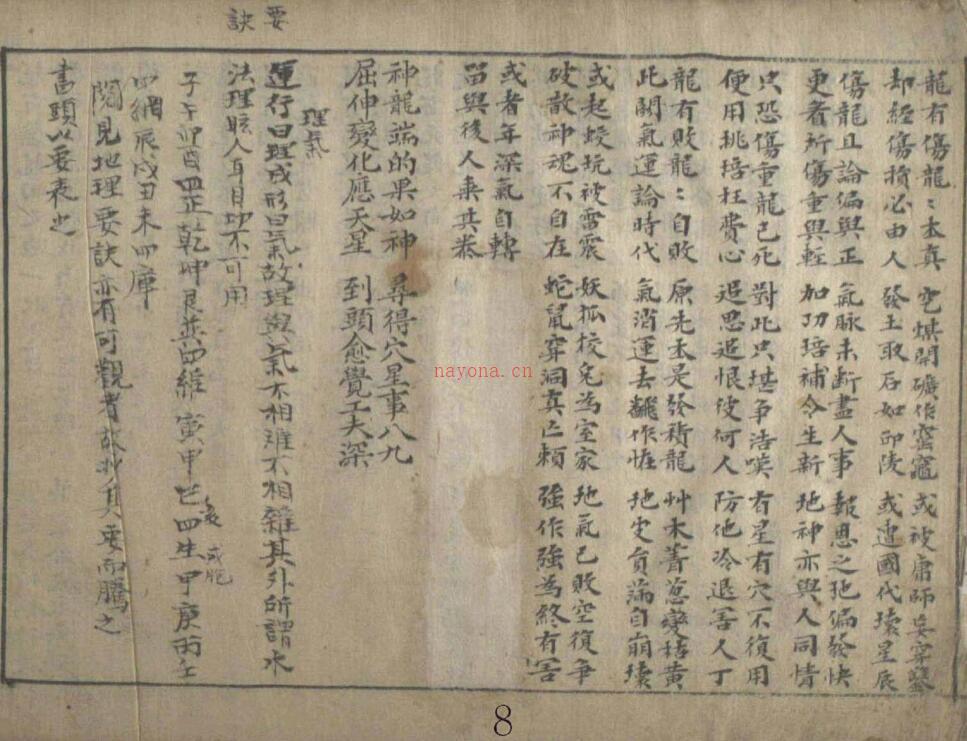 要訣
龍有傷龍:本真 穴煤開礦作窰竈 或被庸師妄穿鑿
却經傷損必由人 發土取石如卬陵 或遭國代壞星辰
傷龍且論偏與正 氣脉未断盡人事 報恩之地偏發快
更看所傷重與輕 加功培補令生新 地神亦與人同情
只恐傷重龍已死 對此只堪爭浩嘆 有星有穴不復用
便用挑培枉費心 追思追恨彼何人 防他冷退害人丁
龍有敗龍:自敗 原先本是發積龍 艸木菁葱變枯黄
此關氣運論時代 氣消運去難作恠 地皮貟崩自崩壞
或起蛟坑被雷震 妖狐狡兔為室家 地氣已敗空復爭
破散神魂不自在 蛇鼠穿洞真亡賴 強作強為終有害
或者年深氣自轉
留與後人乗其恭
神龍端的果如神 尋得穴星事八九
屈伸變化應天星 到頭愈覺工夫深
理氣
運行曰理成形曰氣故理與氣不相離不相雜其外所謂水
法理眩人耳目切不可用
子午卯酉四正乾坤艮巽四維寅申巳亥四生甲庚丙壬
或胞
四綱辰戌丑未四庫
閱見地理要訣亦有可觀者故抄其要而騰之
書頭以要表之
nayona.cn
8